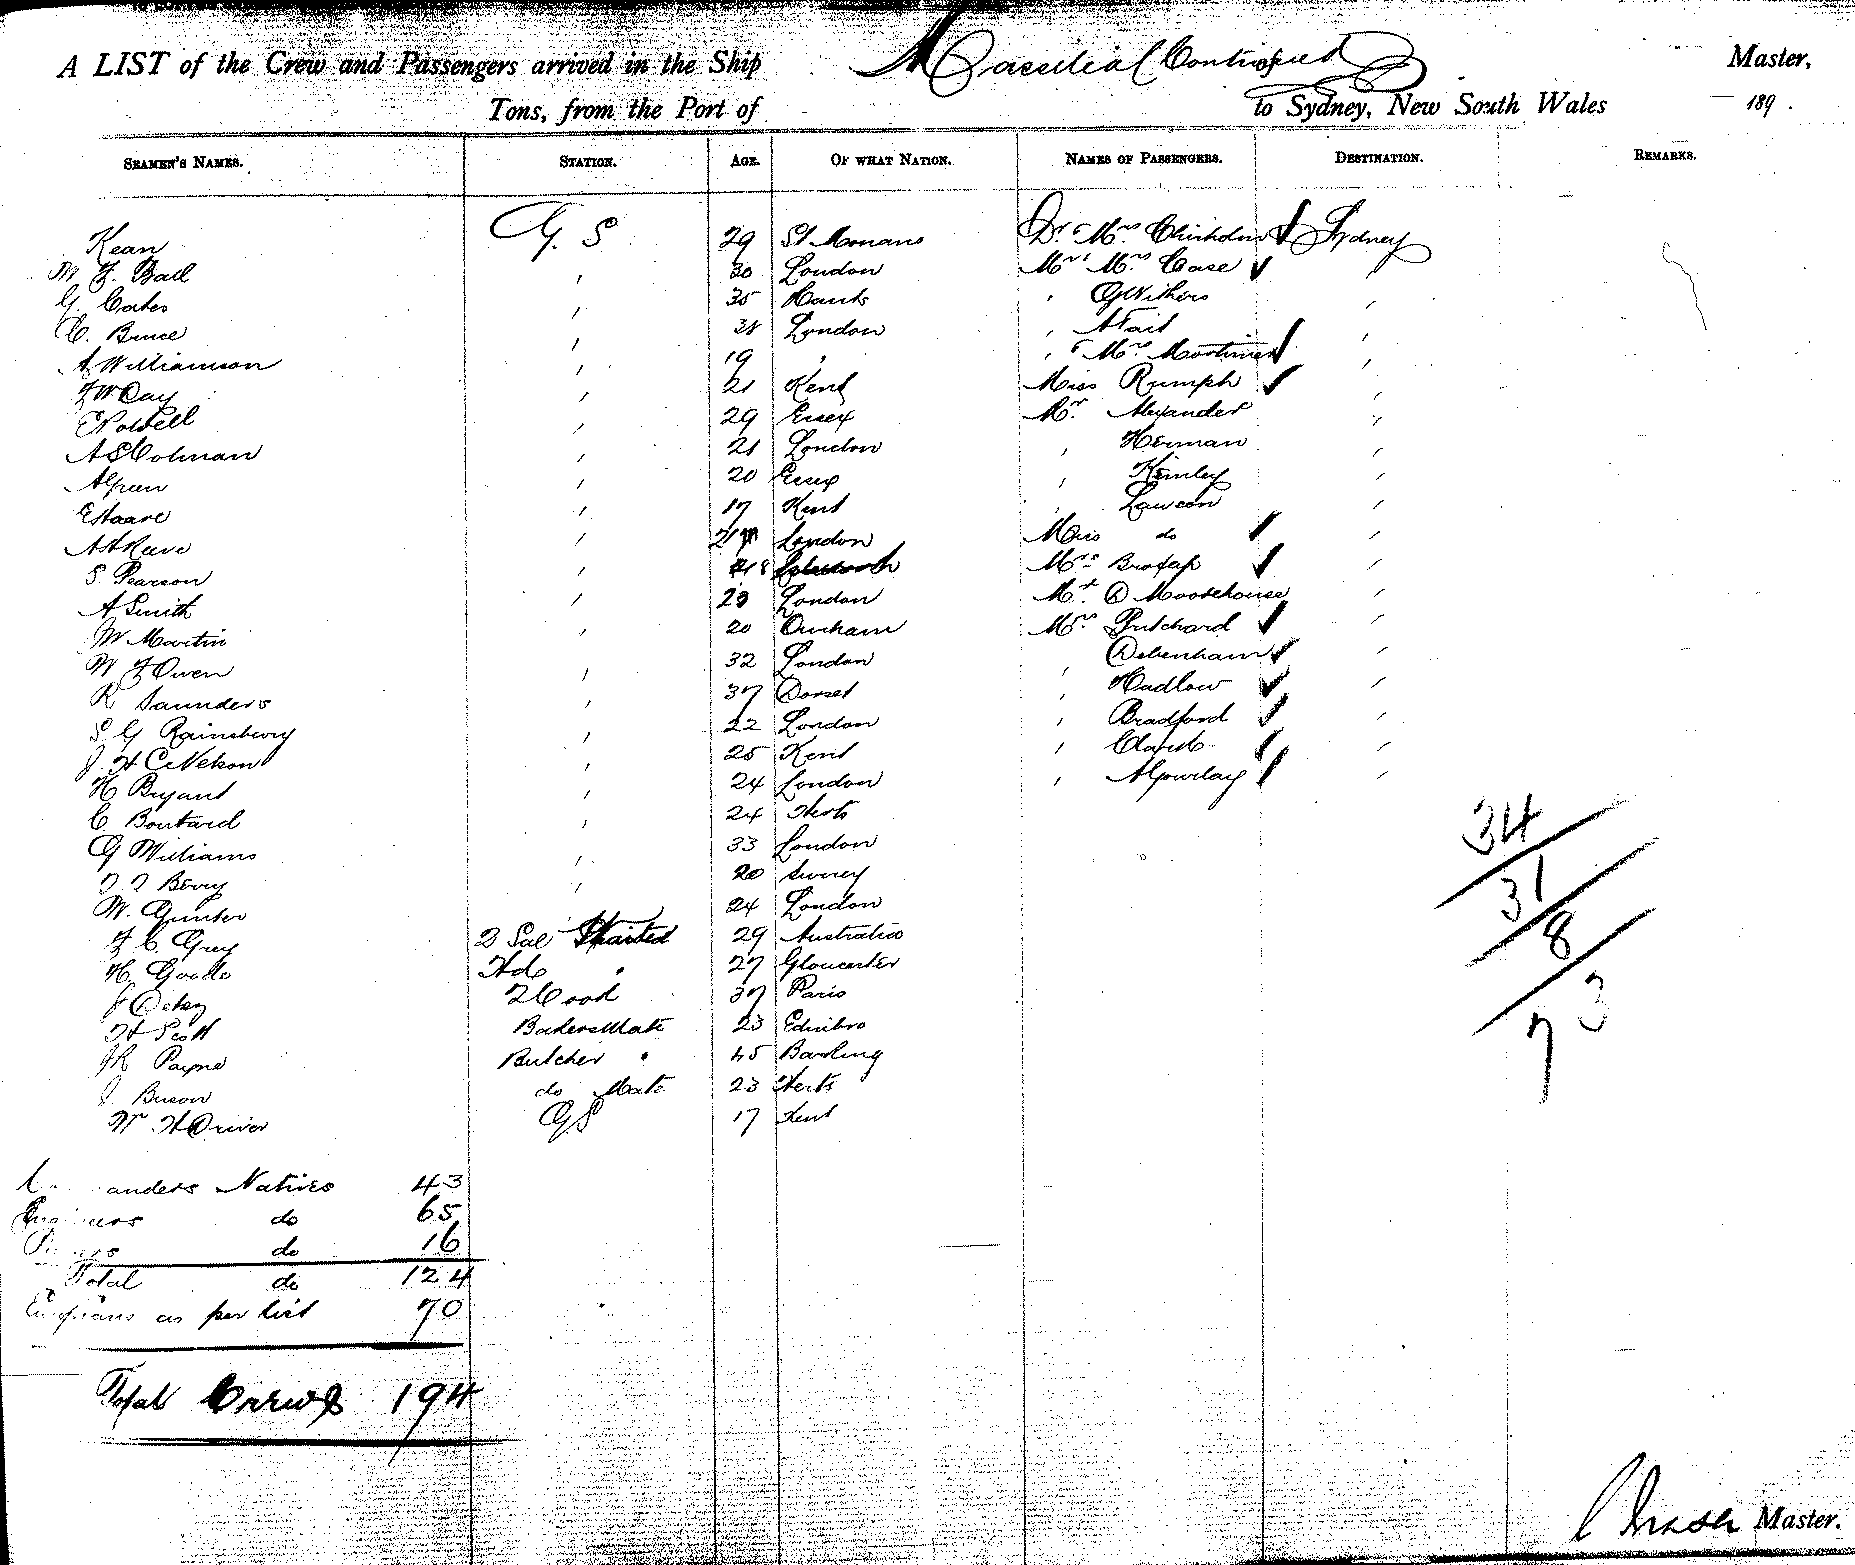 A LIST of the Crew and Passengers arrived in the Ship Massilia Continued Master,
Tons, from the Port of to Sydney, New South Wales 189 .
SEAMEN'S NAMES. STATION. AGE. OF WHAT NATION. NAMES OF PASSENGERS. DESTINATION. REMARKS.
Kean G. S 29 St Monans Dr & Mrs Chisholm Sydney
W F Ball ' 30 London Mr & Mrs Case '
G. Coates ' 35 Hants ' G Withers '
C. Bruce ' 31 London ' A Tait '
A Williamson ' 19 " ' & Mrs Mortimer '
F W Day ' 21 Kent Miss Rumph '
E Powell ' 29 Essex Mr. Alexander '
A E Colman ' 21 London ' Herman '
A Green ' 20 Essex ' Kemley '
E Hoare ' 17 Kent ' Lawson '
A A Reeve ' 21 London Miss do '
S. Pearson ' 18 Mrs Brotap '
A Smith ' 23 London Mr. D Moorehouse '
W Martin ' 20 Durham Mrs Pritchard '
W F Owen ' 32 London ' Debenham '
R Saunders ' 37 Dorset ' Hadlow '
S. G Rainsbury ' 22 London ' Bradford '
J. H C Nelson ' 25 Kent ' Clark '
H Bryant ' 24 London ' A Gourlay '
C. Boutard ' 24 Herts
G Williams ' 33 London
Berry ' 20 Surrey
W. Gunter ' 24 London
F C Grey 2 Sal 29 Australia
H Goode " 27 Gloucester
J 2 Cook 37 Paris
H Scott Bakers Mate 23 Edinbro
J R Payne Butcher " 45 Barking
J. Buson do Mate 23 Herts
W H Driver GS 17 Kent
34
31
8
73
Natives 43
Engineers do 65
do 16
Total do 124
as per list 70
Total Crew 194
Fraser Master.